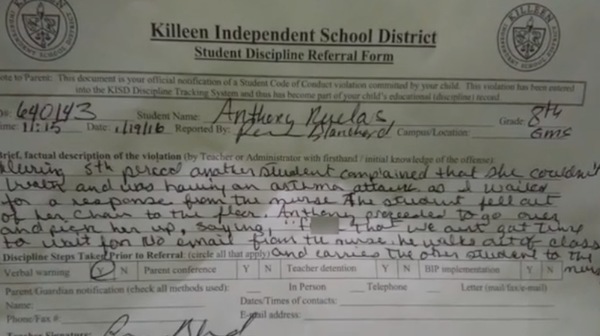 Killeen Independent School District
Student Discipline Referral Form
Note to Parent: This document is your official notification of a Student Code of Conduct violation committed by your child. This violation has been entered
into the KISD Discipline Tracking System and thus has become part of your child's educational (discipline) record
640143 Student Name: Anthony Ruelas Grade: 8th
Time: 11:15 Date: 1/19/16 Reported By: Blanchard Campus/Location: GMS
Brief, factual description of the violation (by Teacher or Administrator with firsthand / initial knowledge of the offense)
During 5th period another student complained that she couldn't
breath and was having an asthma attack as I waited
for a response from the nurse the student fell out
of her chair to the floor. Anthony proceeded to go over
and pick her up, saying, "f that we ain't got time
to wait for no email from the nurse. he walks out of class
Discipline Steps Taken Prior to Referral (circle all that apply) and carries the other student to the
nurse
Verbal warning Y N Parent conference Y N Teacher detention Y N BIP implementation Y N
Parent Guardian notification (check all methods used): In Person Telephone Letter (mail/fax/e-mail)
Name: Dates/Times of contacts:
Phone/Fax #: E-mail address:
Teacher Signature: